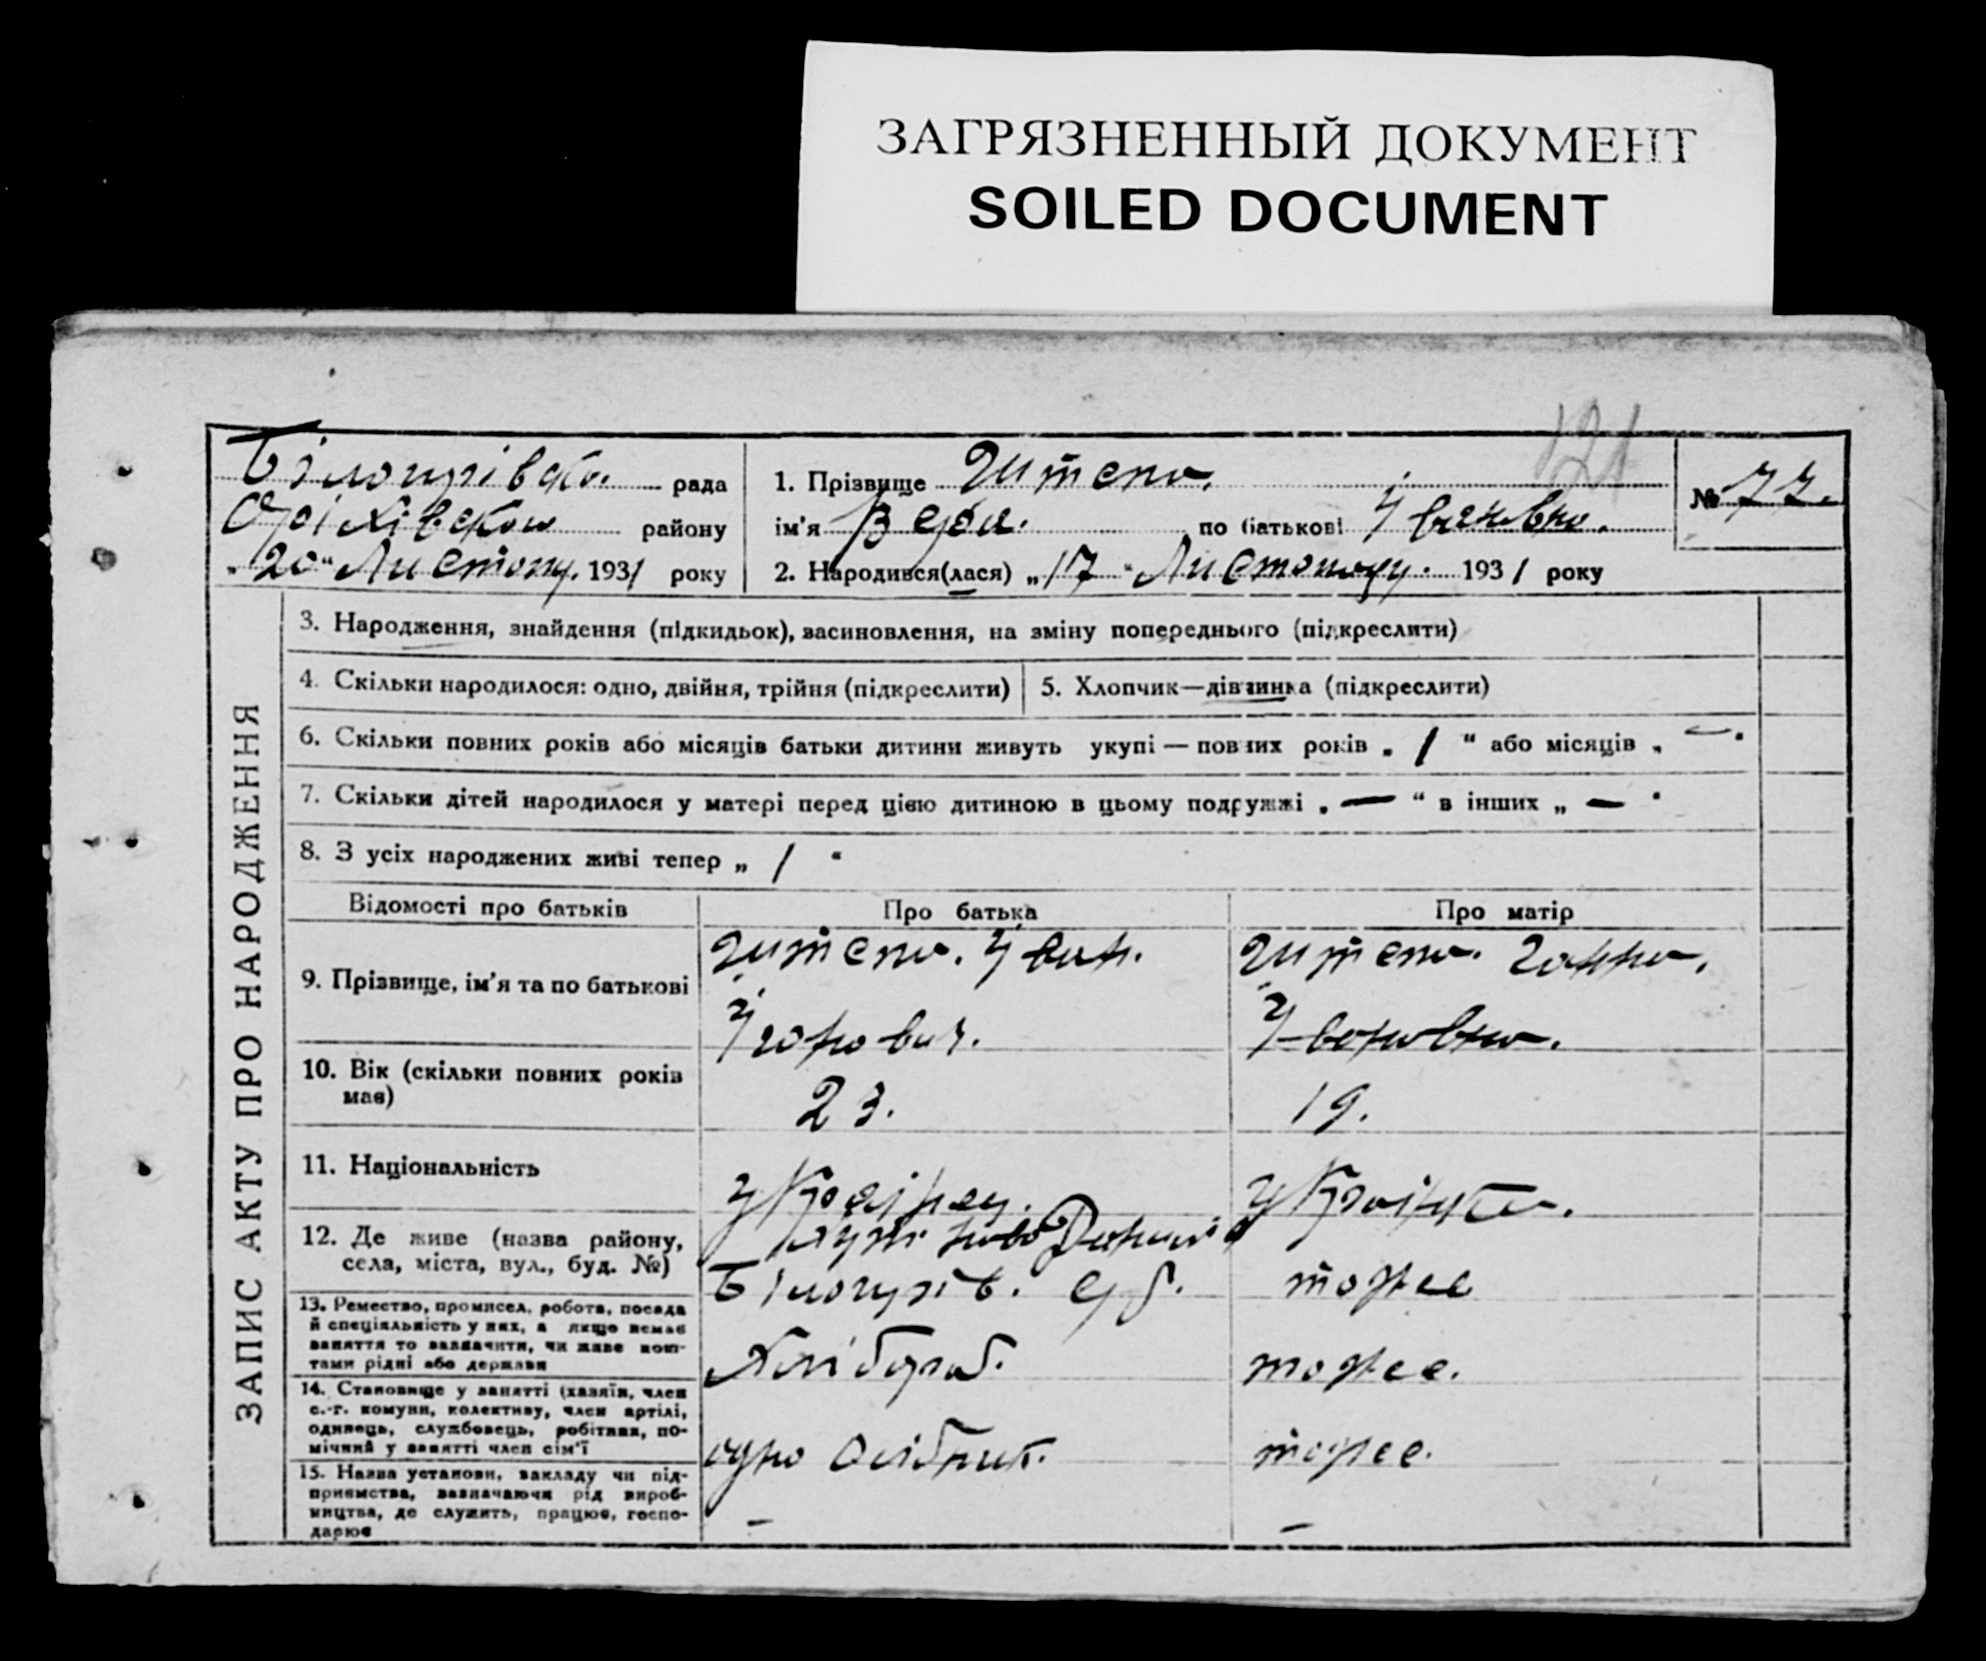 ЗАГРЯЗНЕННЫЙ ДОКУМЕНТ
SOILED DOCUMENT
121
рада
району
"20" Листопу. 1931 року
1. Прізвище Штепа.
№ 77.
ім'я Вера. по батькові Івановна.
2. Народився(лася) „17" Листопаду. 1931 року
ЗАПИС АКТУ ПРО НАРОДЖЕННЯ
3. Народження, знайдення (підкидьок), засиновлення, на зміну попереднього (підкреслити)
4. Скільки народилося: одно, двійня, трійня (підкреслити)
5. Хлопчик—дівчинка (підкреслити)
6. Скільки повних років або місяців батьки дитини живуть укупі — повних років „ 1 " або місяців „ — "
7. Скільки дітей народилося у матері перед цією дитиною в цьому подружжі „ — " в інших „ — "
8. З усіх народжених живі тепер „ 1 "
Відомості про батьків
Про батька
Про матір
9. Прізвище, ім'я та по батькові
Штепа. Іван.
Штепа. Ганна.
Івановна.
10. Вік (скільки повних років
має)
23.
19.
11. Національність
Українец.
Українка.
12. Де живе (назва району,
села, міста, вул., буд. №)
тоже
13. Ремество, промисел, робота, посада
й спеціяльність у них, а якщо немає
заняття то зазначити, чи живе кош-
тами рідні або держави
Хлібороб.
тоже.
14. Становище у занятті (хазяїн, член
с.-г. комуни, колективу, член артілі,
одинець, службовець, робітник, по-
мічний у занятті член сім'ї
одноосібник.
тоже.
15. Назва установи, закладу чи під-
приємства, зазначаючи рід вироб-
ництва, де служить, працює, госпо-
дарює
—
—